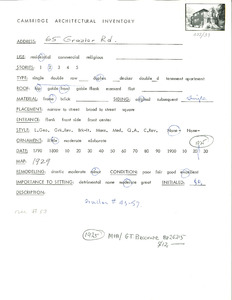 CAMBRIDGE ARCHITECTURAL INVENTORY
ADDRESS: 65 Grozier Rd.
USE: residential commercial religious
STORIES: 1 2 3 4 5
TYPE: single double row duplex decker double d tenement apartment
ROOF: hip gable front gable flank mansard flat
MATERIAL: frame brick SIDING: original subsequent Shingle
PLACEMENT: narrow to street broad to street square
ENTRANCE: flank front side front center
STYLE: L.Geo. Gk.Rev. Brkt. Mans. Med. Q.A. C.Rev. None+ None-
ORNAMENT: little moderate elaborate
DATE: 1790 1800 10 20 30 40 50 60 70 80 90 1900 10 20 30
1925
MAP: 1929
REMODELING: drastic moderate minor CONDITION: poor fair good excellent
IMPORTANCE TO SETTING: detrimental none moderate great INITIALED:
DESCRIPTION:
Similar # 53-57
1925